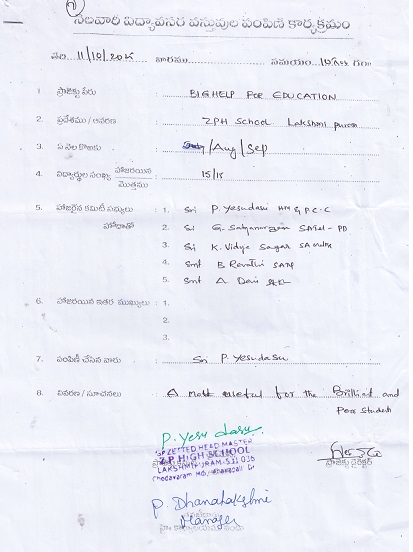 నెలవారి విద్యావసర వస్తువుల పంపిణీ కార్యక్రమం
తేది. 11/10/2015 వారము సమయం.
1. ప్రాజెక్టు పేరు : BIGHELP FOR EDUCATION
2. ప్రదేశము / ఆవరణ : ZPH School Lakshmi puram
3. ఏ నెల కొఱకు : /Aug/Sep
4. విద్యార్థుల సంఖ్య హాజరయిన / మొత్తము : 15/15
5. హాజరైన కమిటీ సభ్యులు : 1. Sri P. Yesudasu HM & P.C.C
హోదాతో 2. Sri G. Satyanarayana - PD
3. Sri K. Vidya Sagar SA
4. Smt B Revathi
5. Smt A Devi
6. హాజరయిన ఇతర ముఖ్యులు : 1.
2.
3.
7. పంపిణీ చేసిన వారు : Sri P Yesudasu
8. వివరణ / సూచనలు : A most useful for the Brilliant and
Poor Students
P. Yesu dasu
GAZETTED HEAD MASTER
Z.P. HIGH SCHOOL
LAKSHMIPURAM-531 036
ప్రాజెక్టు డైరెక్టర్
P. Dhanalakshmi
Manager